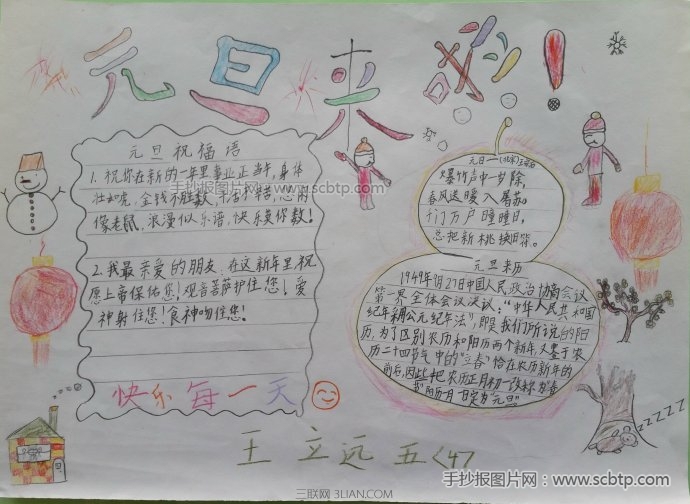 元旦来啦!
元旦祝福语
1. 祝你在新的一年里事业正当午,身体
壮如虎,金钱不胜数,干活不辛苦,悠闲
像老鼠,浪漫似乐谱,快乐莫你数!
2. 我最亲爱的朋友,在这新年里祝
愿上帝保佑您!观音菩萨护住您!爱
神射住您!食神吻住您!
快乐每一天
元日——(北宋)王安石
爆竹声中一岁除,
春风送暖入屠苏。
千门万户曈曈日,
总把新桃换旧符。
元旦来历
1949年9月27日中国人民政治协商会议
第一界全体会议决议:"中华人民共和国
纪年采用公元纪年法",即是我们所说的阳
历,为了区别农历和阳历两个新年,又鉴于农
历二十四节气中的"立春"恰在农历新年的
前后,因此把农历正月初一改称为"春
ZZZZZ
王立远 五〈4〉
手抄报图片网:www.scbtp.com
手抄报图片网:www.scbtp.com
三联网 3LIAN.COM